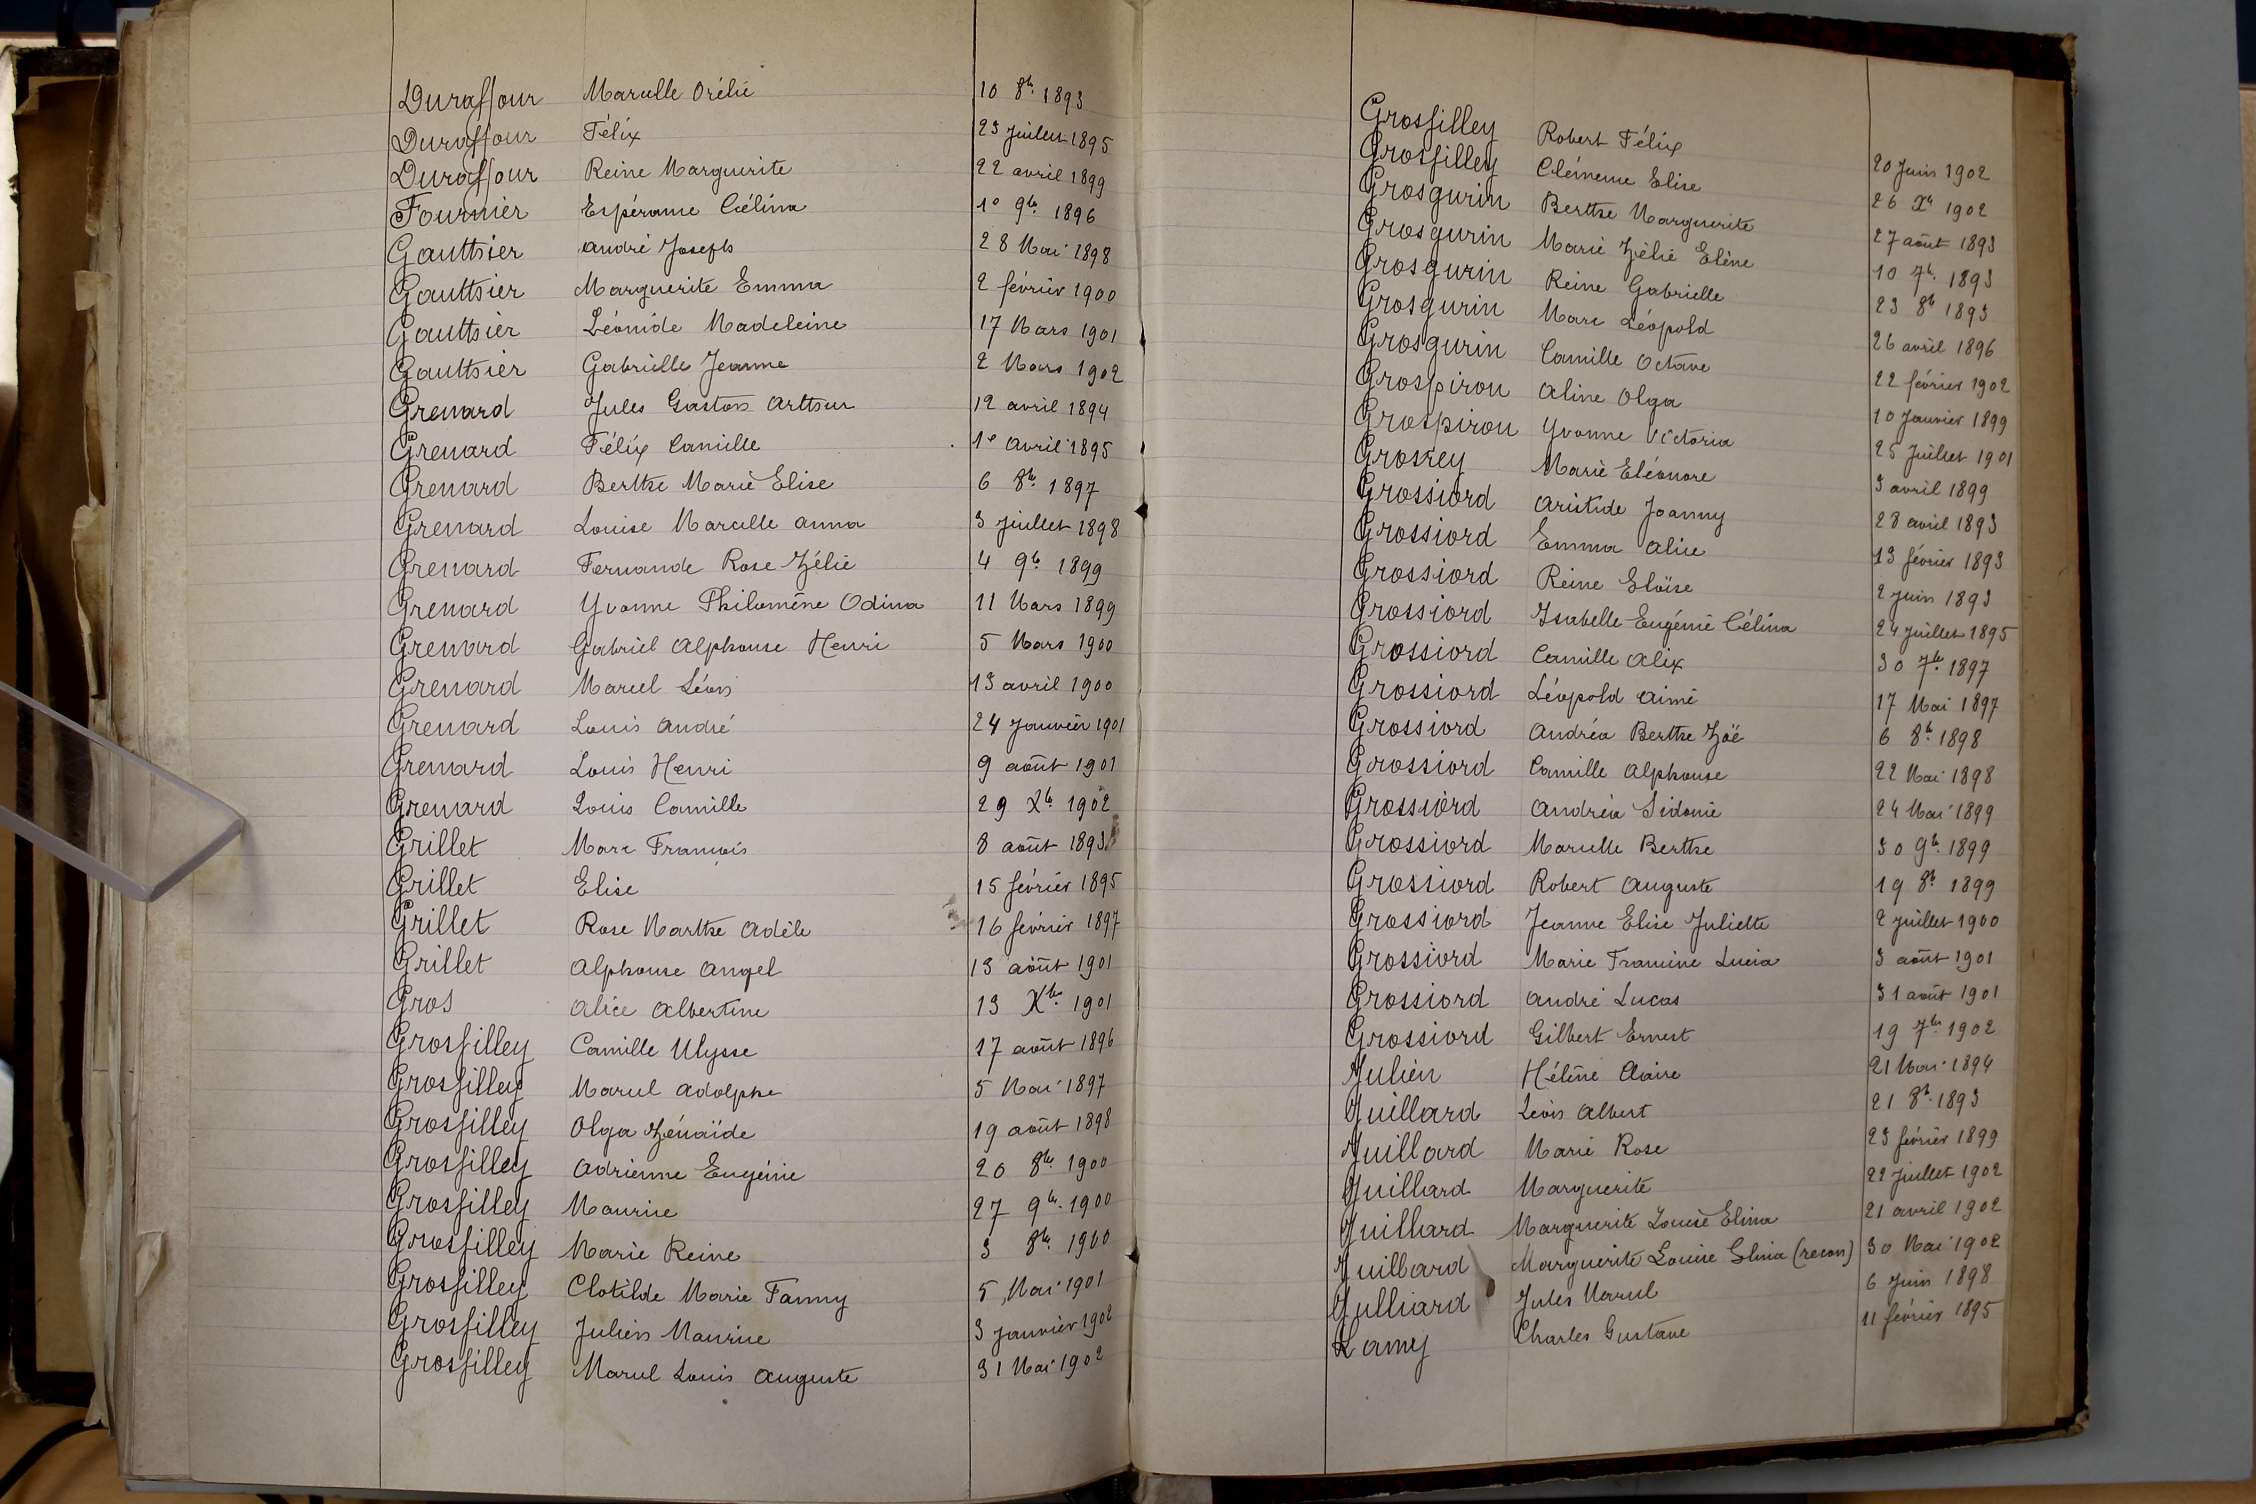 Duraffour Marcelle Orélie 10 8bre 1893
Duraffour Félix 23 juillet 1895
Duraffour Reine Marguerite 22 avril 1899
Fournier Espérance Célina 1º 9bre 1896
Gauthier André Joseph 28 Mai 1898
Gauthier Marguerite Emma 2 février 1900
Gauthier Léonide Madeleine 17 Mars 1901
Gauthier Gabrielle Jeanne 2 Mars 1902
Grenard Jules Gaston Arthur 12 avril 1894
Grenard Félix Camille 1º Avril 1895
Grenard Berthe Marie Elise 6 8bre 1897
Grenard Louise Marcelle Anna 3 juillet 1898
Grenard Fernande Rose Zélie 4 9bre 1899
Grenard Yvonne Philomène Odina 11 Mars 1899
Grenard Gabriel Alphonse Henri 5 Mars 1900
Grenard Marcel Léon 13 avril 1900
Grenard Louis André 24 Janvier 1901
Grenard Louis Henri 9 août 1901
Grenard Louis Camille 29 Xbre 1902
Grillet Marc François 8 août 1893
Grillet Elise 15 février 1895
Grillet Rose Marthe Adèle 16 février 1897
Grillet Alphonse Angel 13 août 1901
Gros Alice Albertine 13 Xbre 1901
Grosfilley Camille Ulysse 17 août 1896
Grosfilley Marcel Adolphe 5 Mai 1897
Grosfilley Olga Zénaïde 19 août 1898
Grosfilley Adrienne Eugénie 20 8bre 1900
Grosfilley Maurice 27 9bre 1900
Grosfilley Marie Reine 3 8bre 1900
Grosfilley Clotilde Marie Fanny 5 Mai 1901
Grosfilley Julien Maurice 3 janvier 1902
Grosfilley Marcel Louis Auguste 31 Mai 1902
Grosfilley Robert Félix 20 Juin 1902
Grosfilley Clémence Elise 26 Xbre 1902
Grosgurin Berthe Marguerite 27 août 1893
Grosgurin Marie Zélie Elène 10 7bre 1893
Grosgurin Reine Gabrielle 23 8bre 1893
Grosgurin Marc Léopold 26 avril 1896
Grosgurin Camille Octave 22 février 1902
Grospiron Aline Olga 10 Janvier 1899
Grospiron Yvonne Victoria 25 Juillet 1901
Grosrey Marie Eléonore 3 avril 1899
Grossiord Aristide Joanny 28 avril 1893
Grossiord Emma Alice 13 février 1893
Grossiord Reine Eloïse 2 juin 1893
Grossiord Isabelle Eugénie Célina 24 juillet 1895
Grossiord Camille Alix 30 7bre 1897
Grossiord Léopold Aimé 17 Mai 1897
Grossiord Andréa Berthe Zoë 6 8bre 1898
Grossiord Camille Alphonse 22 Mai 1898
Grossiord Andréa Sidonie 24 Mai 1899
Grossiord Marcelle Berthe 30 9bre 1899
Grossiord Robert Auguste 19 8bre 1899
Grossiord Jeanne Elise Juliette 2 juillet 1900
Grossiord Marie Francine Lucia 3 août 1901
Grossiord André Lucas 31 août 1901
Grossiord Gilbert Ernest 19 7bre 1902
Julien Hélène Claire 21 Mai 1894
Juillard Léon Albert 21 8bre 1893
Juillard Marie Rose 23 février 1899
Juillard Marguerite 22 Juillet 1902
Juillard Marguerite Louise Elina 21 avril 1902
Juillard Marguerite Louise Elina (recon) 30 Mai 1902
Julliard Jules Marcel 6 Juin 1898
Lamy Charles Gustave 11 février 1895